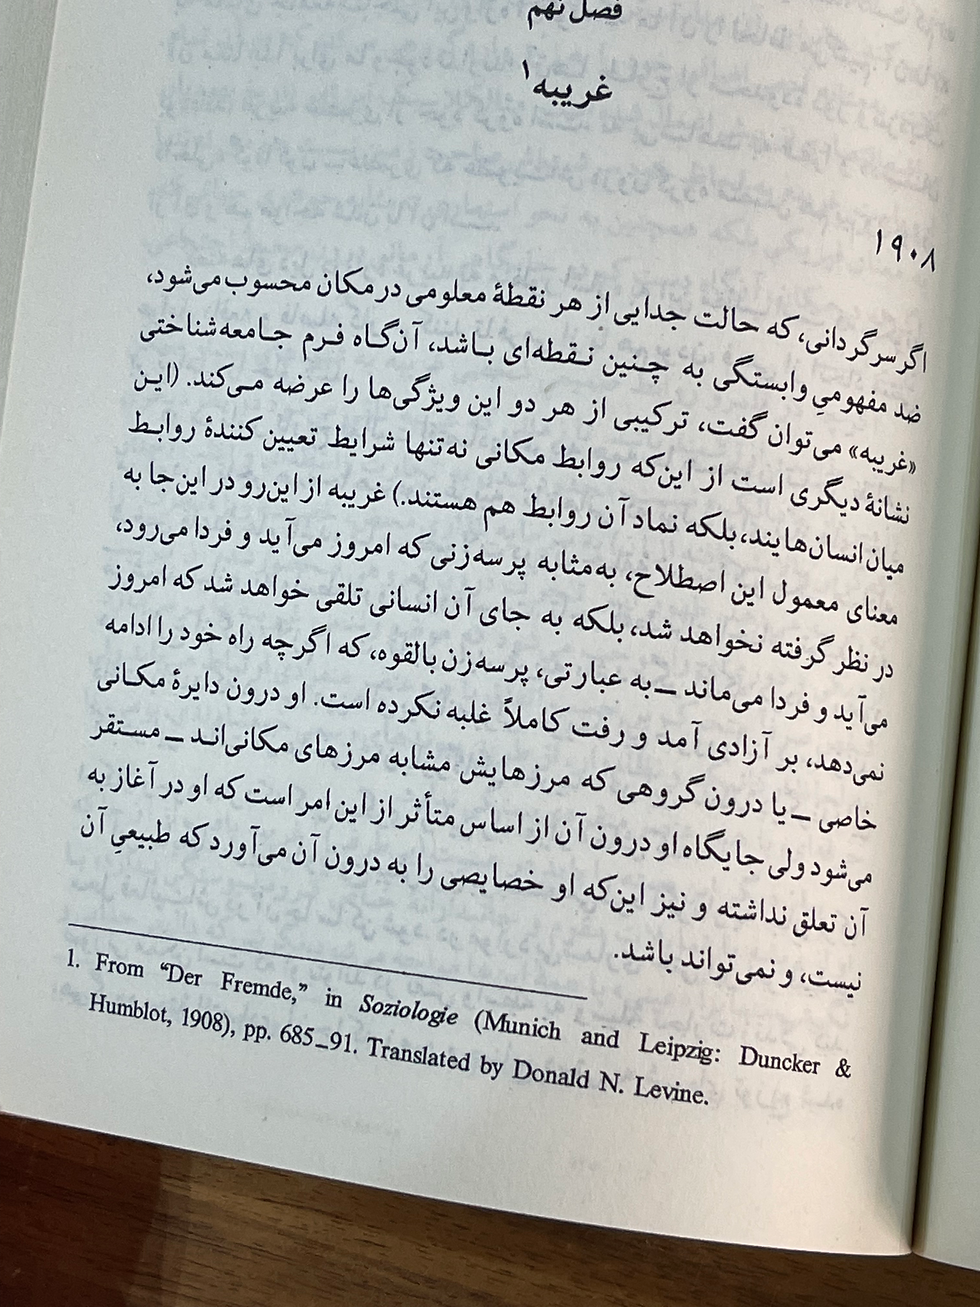 فصل نهم
غریبه۱
۱۹۰۸
اگر سرگردانی، که حالت جدایی از هر نقطهٔ معلومی در مکان محسوب می‌شود،
ضد مفهومیِ وابستگی به چنین نقطه‌ای باشد، آن‌گاه فرم جامعه‌شناختی
«غریبه» می‌توان گفت، ترکیبی از هر دو این ویژگی‌ها را عرضه می‌کند. (این
نشانهٔ دیگری است از این‌که روابط مکانی نه‌تنها شرایط تعیین‌کنندهٔ روابط
میان انسان‌هایند، بلکه نماد آن روابط هم هستند.) غریبه از این‌رو در این‌جا به
معنای معمول این اصطلاح، به‌مثابه پرسه‌زنی که امروز می‌آید و فردا می‌رود،
در نظر گرفته نخواهد شد، بلکه به جای آن انسانی تلقی خواهد شد که امروز
می‌آید و فردا می‌ماند ــ به عبارتی، پرسه‌زن بالقوه، که اگرچه راه خود را ادامه
نمی‌دهد، بر آزادی آمد و رفت کاملاً غلبه نکرده است. او درون دایرهٔ مکانی
خاصی ــ یا درون گروهی که مرزهایش مشابه مرزهای مکانی‌اند ــ مستقر
می‌شود ولی جایگاه او درون آن از اساس متأثر از این امر است که او در آغاز به
آن تعلق نداشته و نیز این‌که او خصایصی را به درون آن می‌آورد که طبیعیِ آن
نیست، و نمی‌تواند باشد.
1. From “Der Fremde,” in Soziologie (Munich and Leipzig: Duncker &
Humblot, 1908), pp. 685_91. Translated by Donald N. Levine.